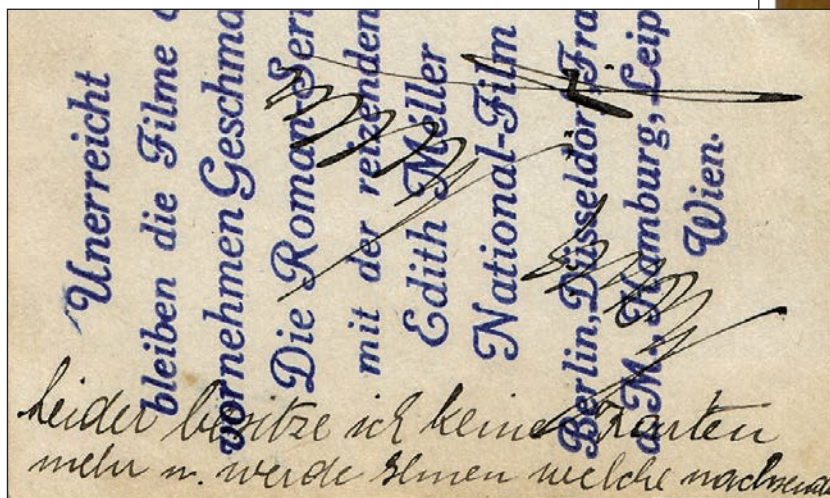 Unerreicht
bleiben die Filme d
vornehmen Geschma
Die Roman-Seri
mit der reizenden
Edith Méller
National-Film
Berlin, Düsseldorf, Fra
a M., Hamburg, Leip
Wien.
Leider besitze ich keine Karten
mehr u. werde Ihnen welche nachsend